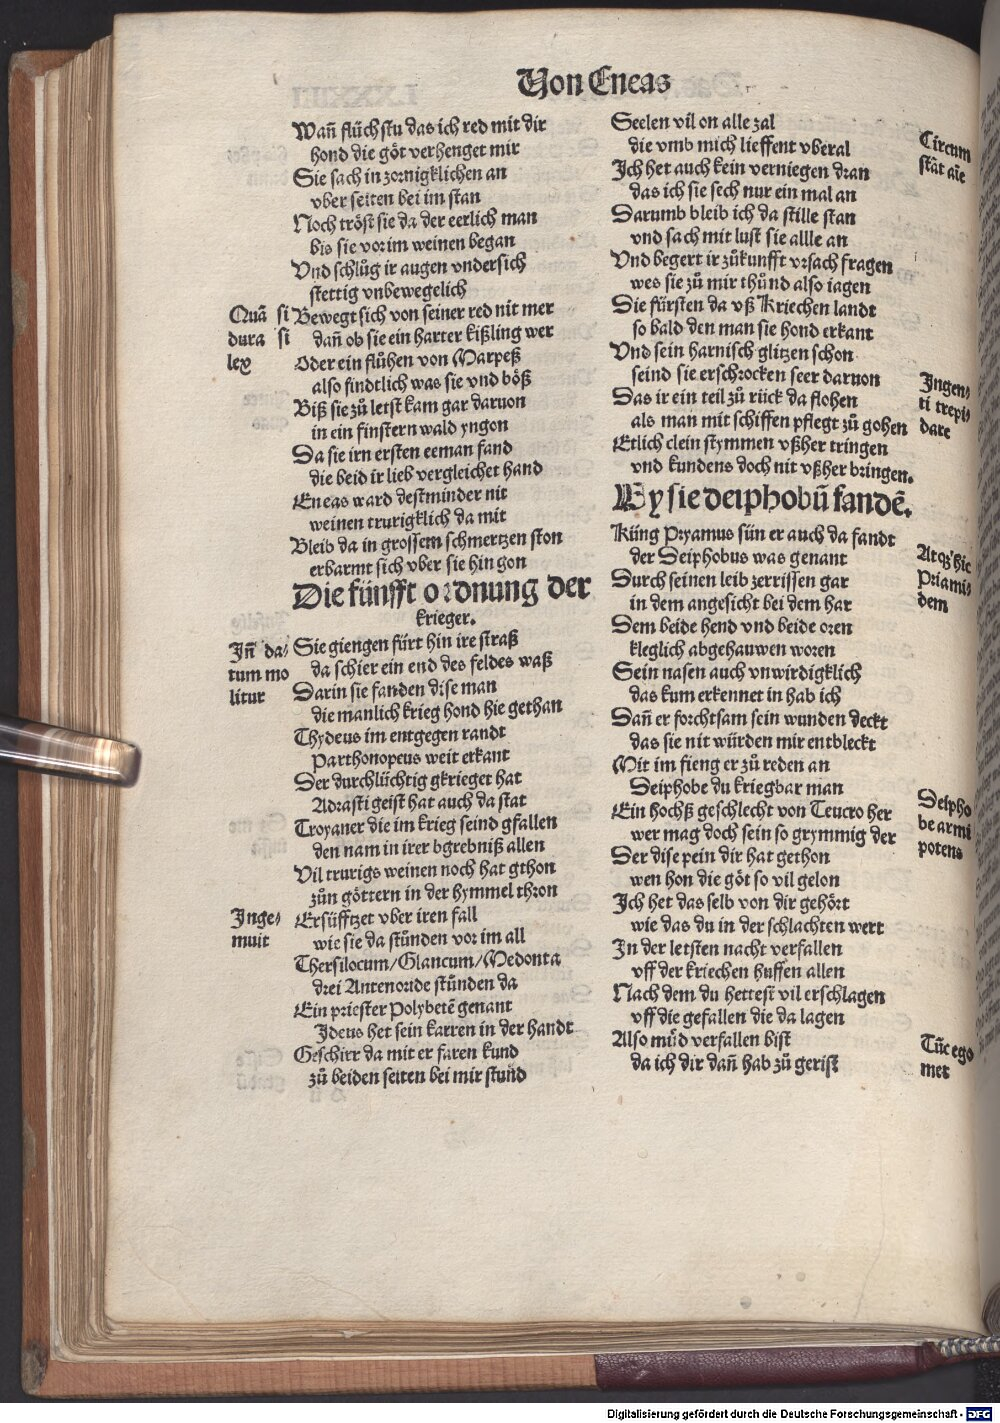 Von Eneas
Wañ flüchstu das ich red mit dir
hond die göt verhenget mir
Sie sach in zornigklichen an
vber seiten bei im stan
Noch tröst sie da der eerlich man
bis sie vor im weinen began
Vnd schlůg ir augen vndersich
stettig vnbewegelich
Quã si
dura si
lex
Bewegt sich von seiner red nit mer
dañ ob sie ein harter kißling wer
Oder ein flühen von Marpeß
also findtlich was sie vnd böß
Biß sie zů letst kam gar daruon
in ein finstern wald yngon
Da sie irn ersten eeman fand
die beid ir lieb vergleichet hand
Eneas ward destminder nit
weinen trurigklich da mit
Bleib da in grossem schmertzen ston
erbarmt sich vber sie hin gon
Die fünfft ordnung der
krieger.
Jñ da-
tum mo
litur
Sie giengen fürt hin ire straß
da schier ein end des feldes waß
Darin sie fanden dise man
die manlich krieg hond hie gethan
Thydeus im entgegen randt
Parthonopeus weit erkant
Der durchlüchtig gkrieget hat
Adrasti geist hat auch da stat
Troyaner die im krieg seind gfallen
den nam in irer bgrebniß allen
Vil trurigs weinen noch hat gthon
zůn göttern in der hymmel thron
Jnge-
muit
Ersüfftzet vber iren fall
wie sie da stůnden vor im all
Thersilocum/Glancum/Medonta
drei Antenoride stůnden da
Ein priester Polybetẽ genant
Jdeus het sein karren in der handt
Geschirr da mit er faren kund
zů beiden seiten bei mir stůnd
Seelen vil on alle zal
die vmb mich lieffent vberal
Circum
stãt aĩe
Jch het auch kein verniegen dran
das ich sie sech nur ein mal an
Darumb bleib ich da stille stan
vnd sach mit lust sie allle an
Vnd begert ir zůkunfft vrsach fragen
wes sie zů mir thůnd also iagen
Die fürsten da vß Kriechen landt
so bald den man sie hond erkant
Vnd sein harnisch glitzen schon
seind sie erschrocken seer daruon
Jngen-
ti trepi-
dare
Das ir ein teil zů rück da flohen
als man mit schiffen pflegt zů gohen
Etlich clein stymmen vßher tringen
vnd kundens doch nit vßher bringen.
Wy sie deiphobũ fandẽ.
Küng Pryamus sün er auch da fandt
der Deiphobus was genant
Atqʒ hic
Priami-
dem
Durch seinen leib zerrissen gar
in dem angesicht bei dem har
Dem beide hend vnd beide oren
kleglich abgehauwen woren
Sein nasen auch vnwirdigklich
das kum erkennet in hab ich
Dañ er forchtsam sein wunden deckt
das sie nit würden mir entbleckt
Mit im fieng er zů reden an
Deiphobe du kriegbar man
Deipho
be armi
potens
Ein hochß geschlecht von Teucro her
wer mag doch sein so grymmig der
Der dise pein dir hat gethon
wen hon die göt so vil gelon
Jch het das selb von dir gehört
wie das du in der schlachten wert
Jn der letsten nacht verfallen
vff der kriechen huffen allen
Nach dem du hettest vil erschlagen
vff die gefallen die da lagen
Also můd verfallen bist
da ich dir dañ hab zů gerist
Tũc ego
met
Digitalisierung gefördert durch die Deutsche Forschungsgemeinschaft - DFG